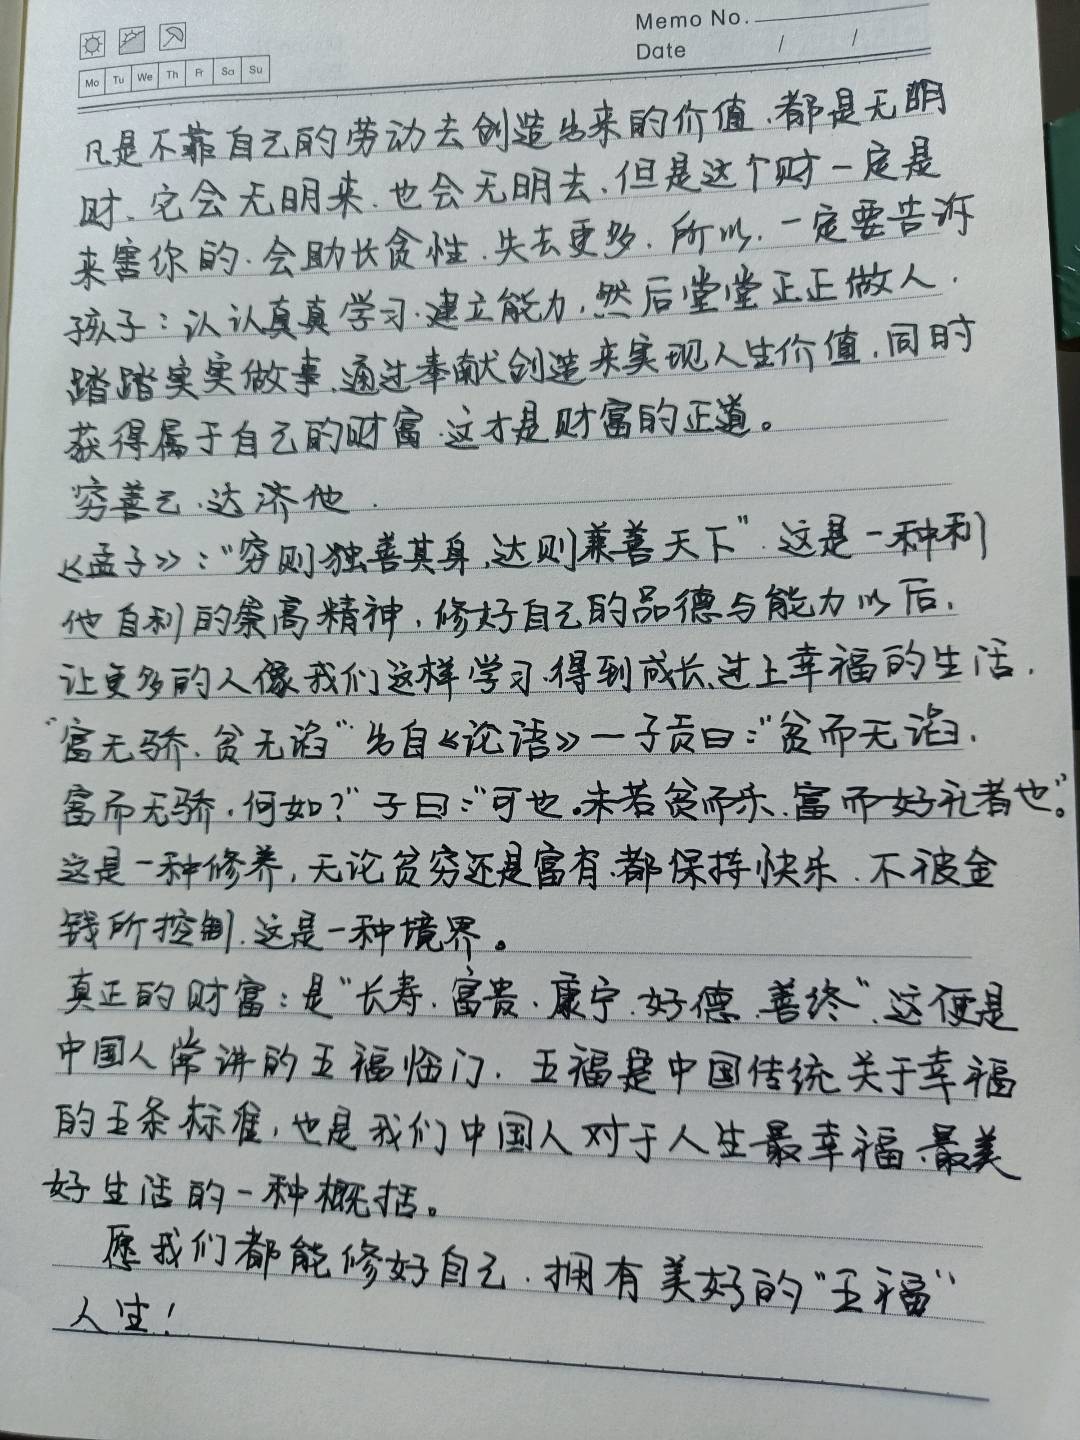 Memo No.
Date / /
Mo Tu We Th Fr Sa Su
凡是不靠自己的劳动去创造出来的价值,都是无明
财、它会无明来、也会无明去、但是这个财一定是
来害你的、会助长贪性、失去更多、所以、一定要告诉
孩子:认认真真学习、建立能力,然后堂堂正正做人、
踏踏实实做事、通过奉献创造来实现人生价值,同时
获得属于自己的财富、这才是财富的正道。
穷善己、达济他、
《孟子》:“穷则独善其身、达则兼善天下”、这是一种利
他自利的崇高精神,修好自己的品德与能力以后,
让更多的人像我们这样学习、得到成长、过上幸福的生活、
“富无骄、贫无谄”出自《论语》一子贡曰:“贫而无谄、
富而无骄,何如?”子曰:“可也。未若贫而乐、富而好礼者也”。
这是一种修养,无论贫穷还是富有、都保持快乐、不被金
钱所控制、这是一种境界。
真正的财富:是“长寿、富贵、康宁、好德、善终”、这便是
中国人常讲的五福临门、五福是中国传统关于幸福
的五条标准,也是我们中国人对于人生最幸福、最美
好生活的一种概括。
愿我们都能修好自己、拥有美好的“五福”
人生!